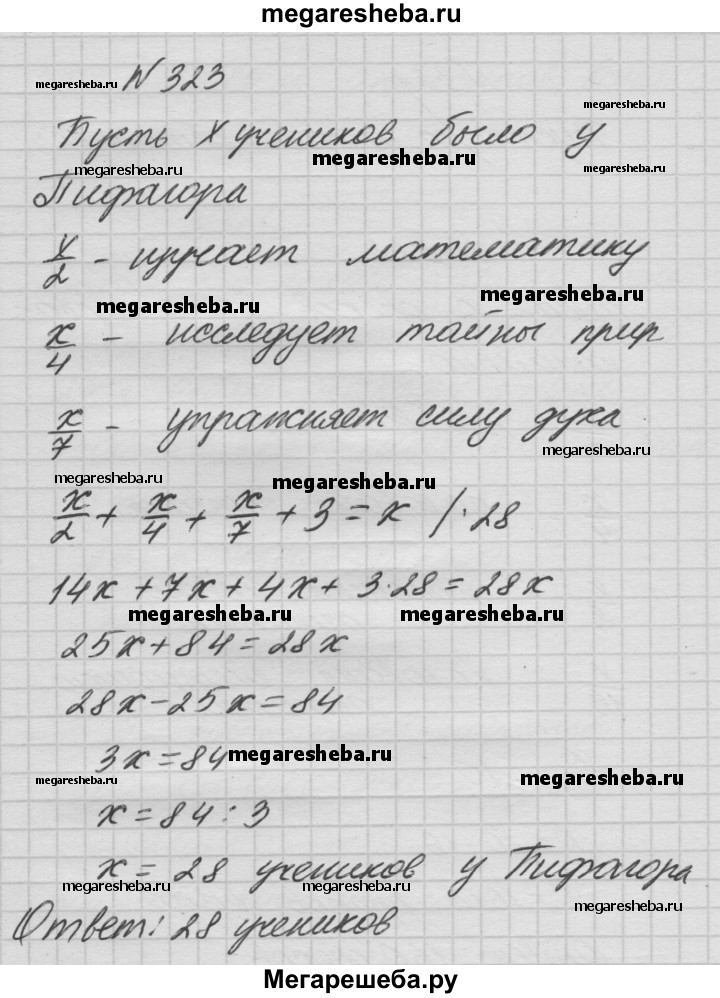 megaresheba.ru
megaresheba.ru № 323
megaresheba.ru
Пусть x учеников было у
megaresheba.ru
megaresheba.ru megaresheba.ru
Пифагора
x/2 - изучает математику
megaresheba.ru megaresheba.ru
x/4 - исследует тайны прир
x/7 - упражняет силу духа
megaresheba.ru megaresheba.ru
megaresheba.ru
x/2 + x/4 + x/7 + 3 = x /·28
14x + 7x + 4x + 3·28 = 28x
megaresheba.ru megaresheba.ru
25x + 84 = 28x
28x - 25x = 84
3x = 84 megaresheba.ru
megaresheba.ru megaresheba.ru
x = 84 : 3
x = 28 учеников у Пифагора
megaresheba.ru megaresheba.ru
megaresheba.ru
Ответ: 28 учеников
Мегарешеба.ру